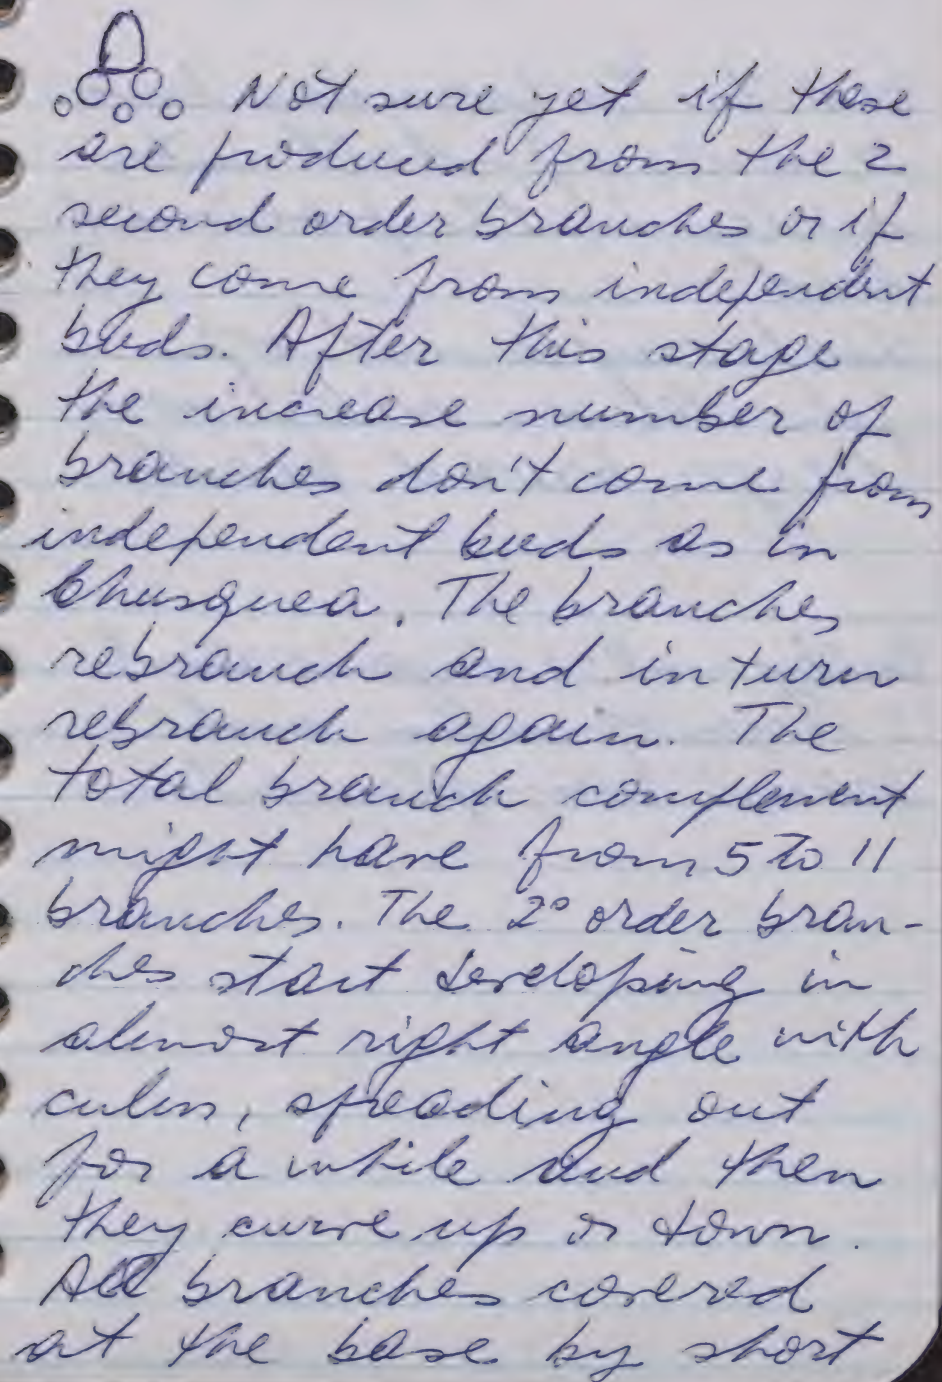 Not sure yet if these
are produced from the 2
second order branches or if
they come from independent
buds. After this stage
the increase number of
branches don't come from
independent buds as in
Chusquea. The branches
rebranch and in turn
rebranch again. The
total branch complement
might have from 5 to 11
branches. The 2° order bran-
ches start developing in
almost right angle with
culm, spreading out
for a while and then
they curve up or down.
All branches covered
at the base by short